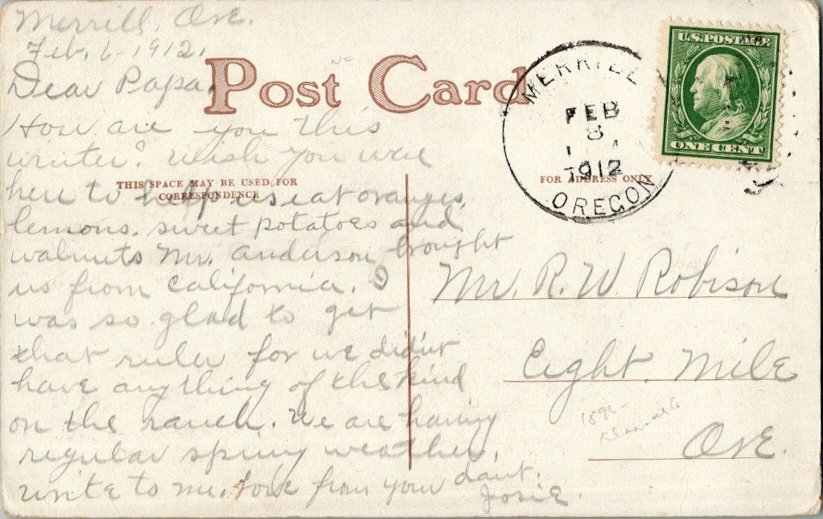 Merrill, Ore.
Feb. 6-1912.
Dear Papa,
How are you this
winter? Wish you were
here to help us eat oranges,
lemons, sweet potatoes and
walnuts Mr. Anderson brought
us from California. I
was so glad to get
that ruler for we didn't
have anything of the kind
on the ranch. We are having
regular spring weather.
write to me. Love from your daut.
Josie.
Post Card
THIS SPACE MAY BE USED FOR
CORRESPONDENCE
FOR ADDRESS ONLY
MERRILL
FEB
8
1912
OREGON
U.S. POSTAGE
ONE CENT
Mr. R. W. Robison
Eight Mile
Ore.